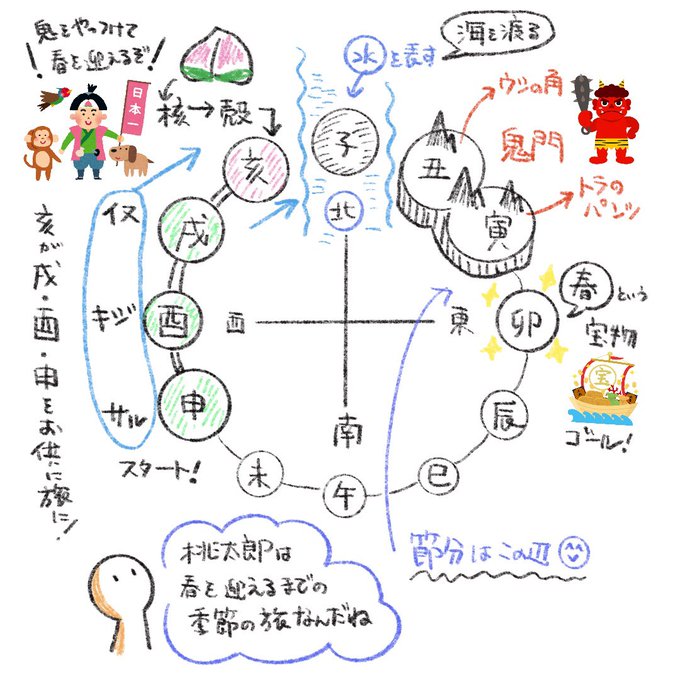 鬼をやっつけて
春を迎えるぞ!
!
日本一
核→殻
水を表す
海を渡る
ウシの角
鬼門
トラの
パンツ
子
北
丑
寅
卯
辰
巳
午
未
申
酉
戌
亥
西
東
南
春という
宝物
宝
ゴール!
イヌ
キジ
サル
スタート!
亥が戌・酉・申をお供に旅に!
節分はこの辺
桃太郎は
春を迎えるまでの
季節の旅なんだね